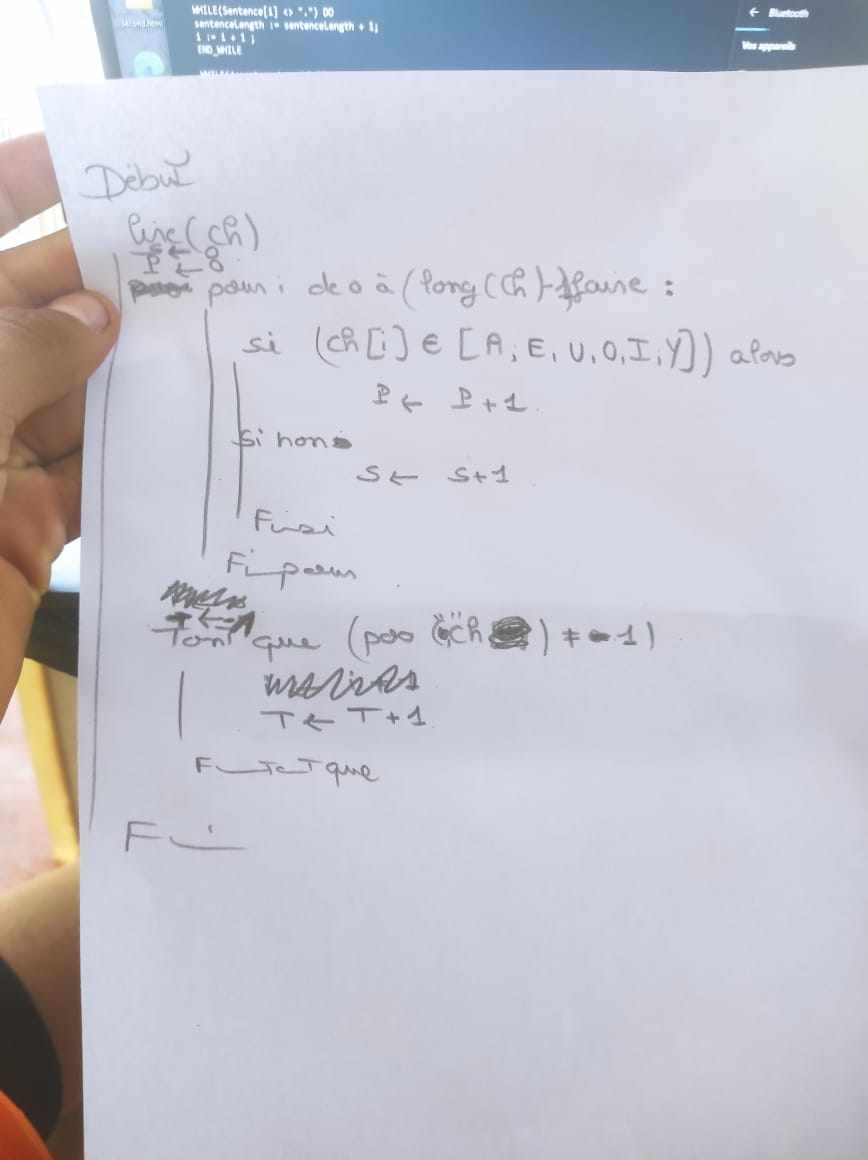 WHILE(Sentence[i] <> ".") DO
sentenceLength := sentenceLength + 1;
i := i + 1 ;
END_WHILE
← Bluetooth
Vos appareils
Début
lire(ch)
S ← 0
P ← 0
pour i de 0 à (long(ch)-1) faire :
si (ch[i] ∈ [A, E, U, O, I, Y]) alors
P ← P + 1
Si non
S ← S+1
Fin si
Fin pour
Tant que (pos (" ", ch) ≠ -1)
T ← T + 1
Fin Tant que
Fin